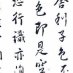 舍利子色不
色即是空
行識亦